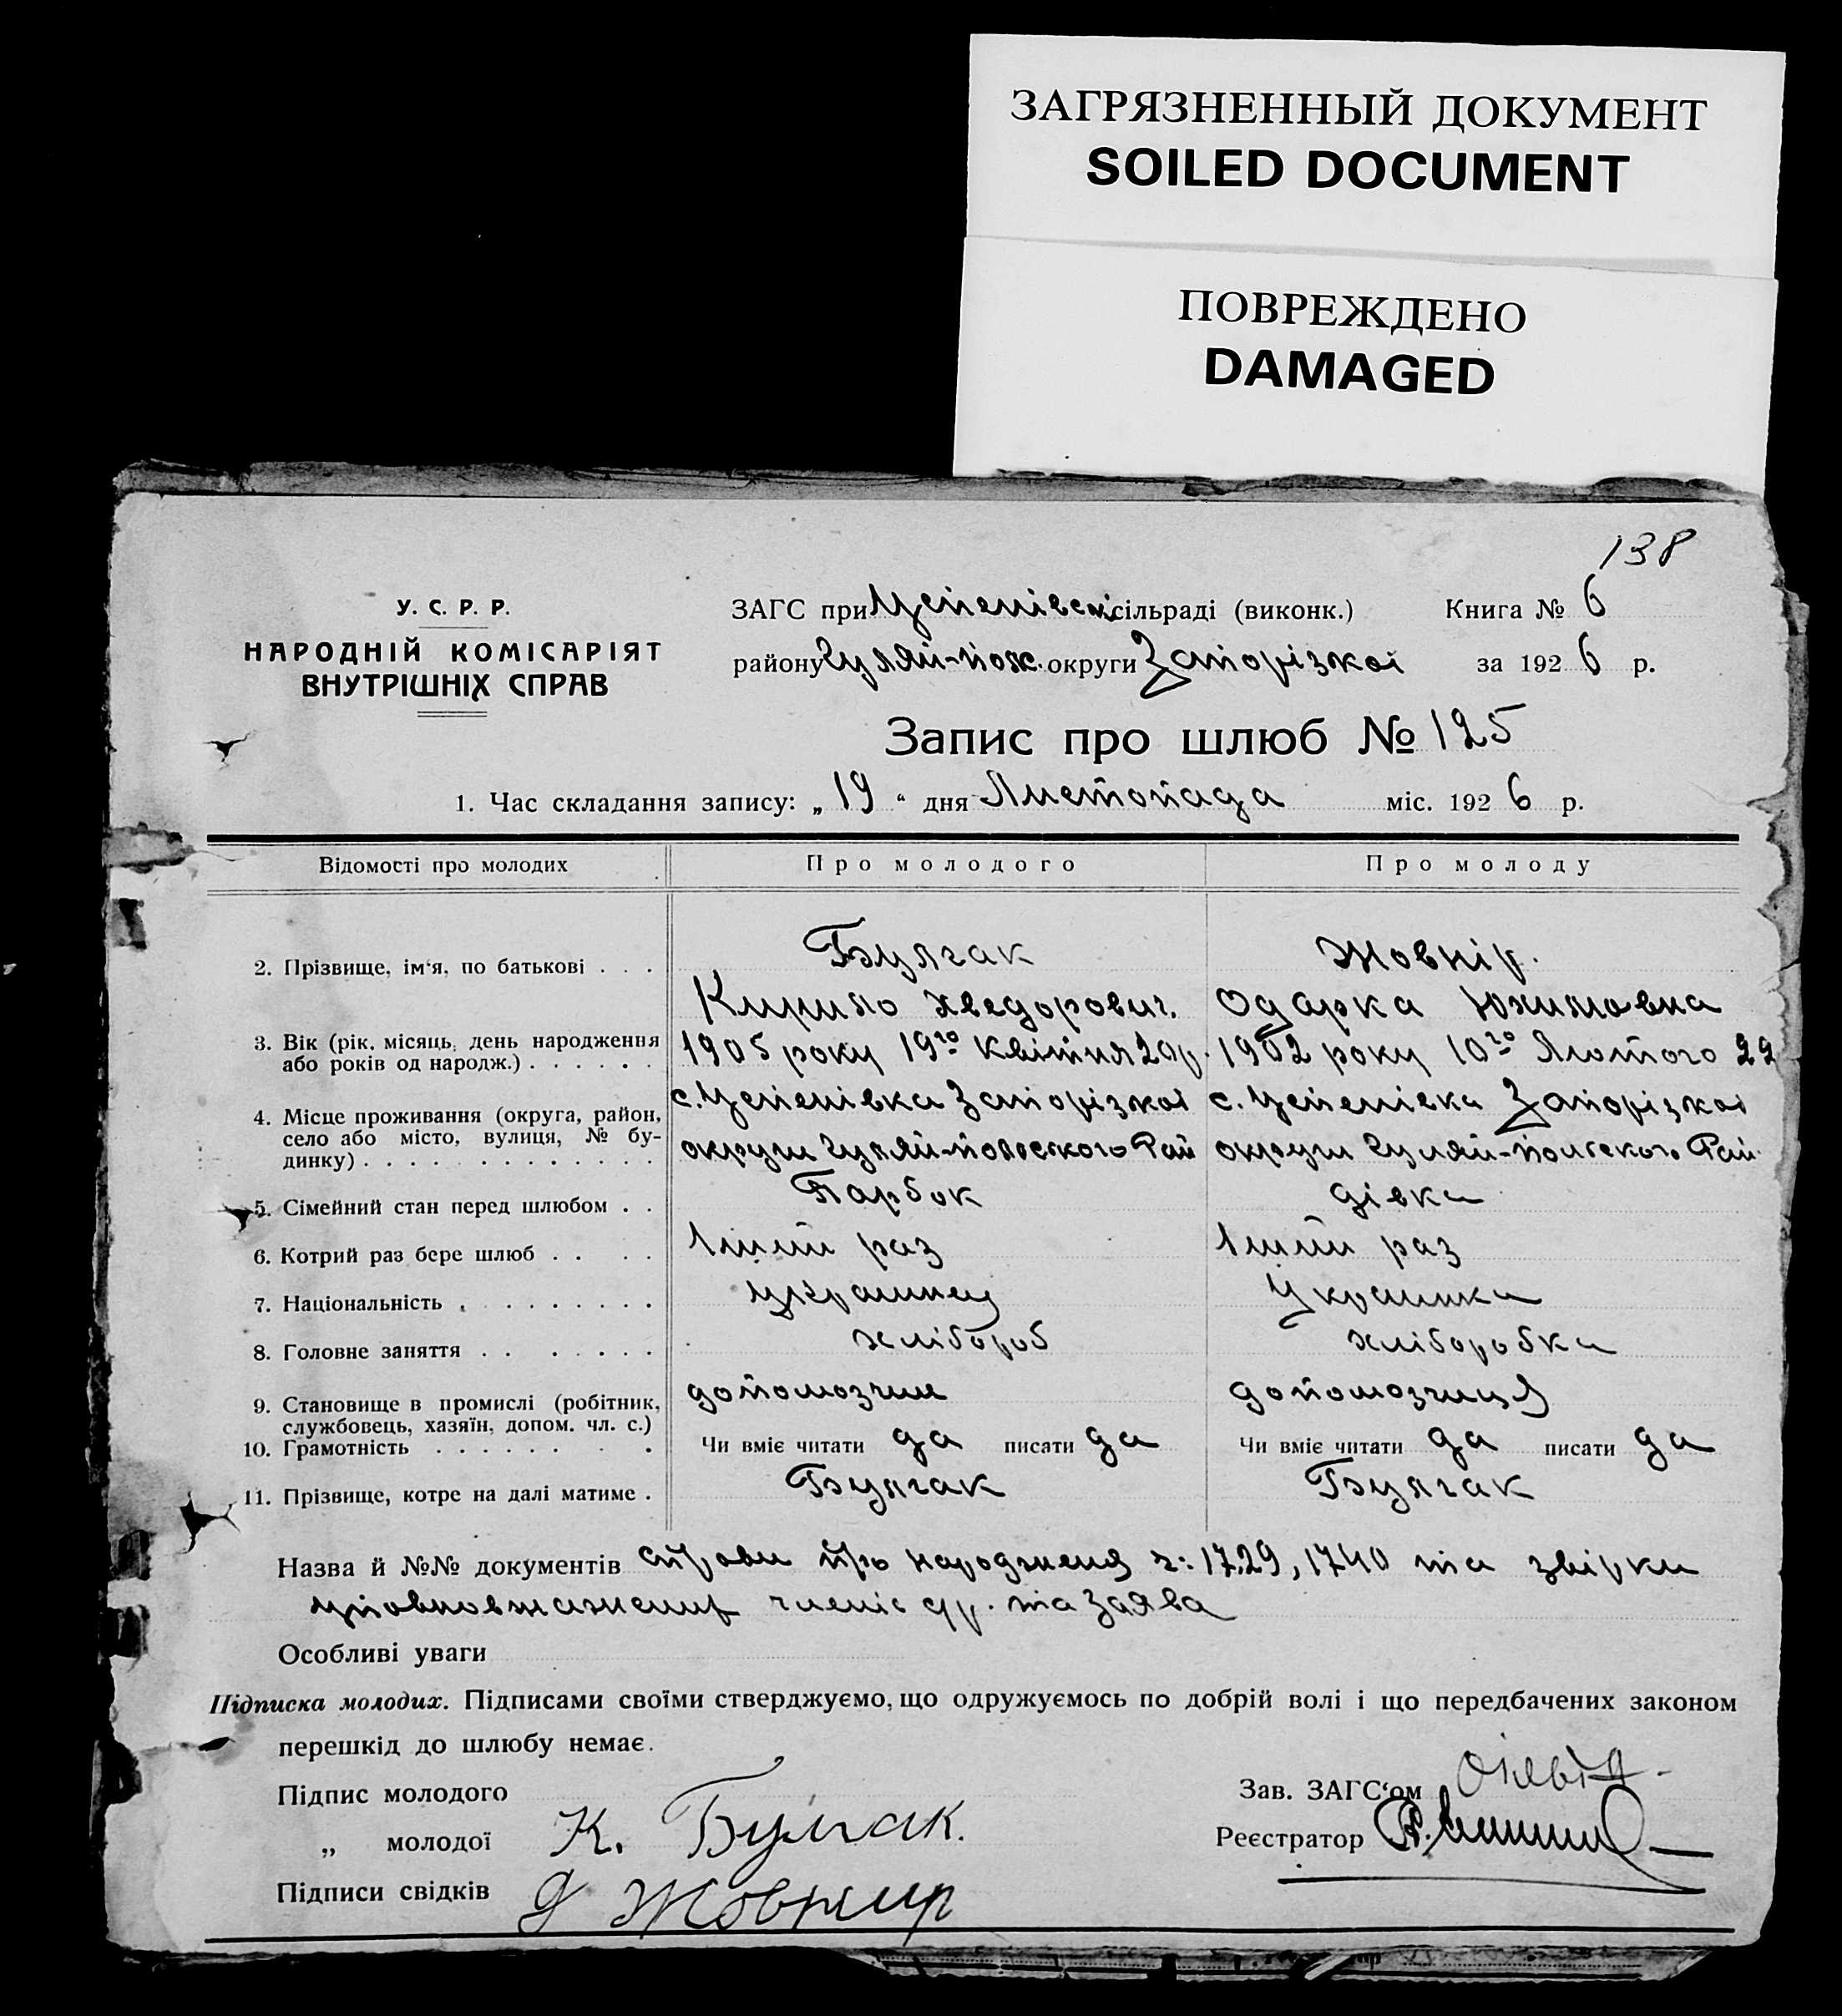 ЗАГРЯЗНЕННЫЙ ДОКУМЕНТ
SOILED DOCUMENT
ПОВРЕЖДЕНО
DAMAGED
138
У. С. Р. Р.
НАРОДНІЙ КОМІСАРІЯТ
ВНУТРІШНІХ СПРАВ
ЗАГС при Успенівські сільраді (виконк.) Книга № 6
району Гуляй-пол. округи Запорізкої за 1926 р.
Запис про шлюб № 125
1. Час складання запису: „ 19 “ дня Листопада міс. 1926 р.
Відомості про молодих Про молодого Про молоду
2. Прізвище, ім‘я, по батькові . . . Булгак Жовнір.
Кирило Хведорович. Одарка Юхимовна
3. Вік (рік. місяць, день народження 1905 року 19го Квітня 20р. 1902 року 10го Лютого 22
або років од народж.) . . . . . .
4. Місце проживання (округа, район, с. Успенівка Запорізкої с. Успенівка Запорізкої
село або місто, вулиця, № бу- округи Гуляй-польского Рай округи Гуляй-польского Рай.
динку) . . . . . . . . . . . . .
5. Сімейний стан перед шлюбом . . Парбок дівка
6. Котрий раз бере шлюб . . . . 1ший раз 1ший раз
7. Національність . . . . . . . . . Украинец Украинка
8. Головне заняття . . . . . . . . хлібороб хліборобка
9. Становище в промислі (робітник, допомозчик допомозчиця
службовець, хазяїн, допом. чл. с.)
10. Грамотність . . . . . . . . Чи вміє читати да писати да Чи вміє читати да писати да
11. Прізвище, котре на далі матиме . Булгак Булгак
Назва й №№ документів справи про народженя ч: 1729, 1740 та звірки
уповноважених членіс с/р. та заява
Особливі уваги
Підписка молодих. Підписами своїми стверджуємо, що одружуємось по добрій волі і що передбачених законом
перешкід до шлюбу немає.
Підпис молодого Зав. ЗАГС‘ом
„ молодої К. Булгак. Реєстратор
Підписи свідків Д Жовнир